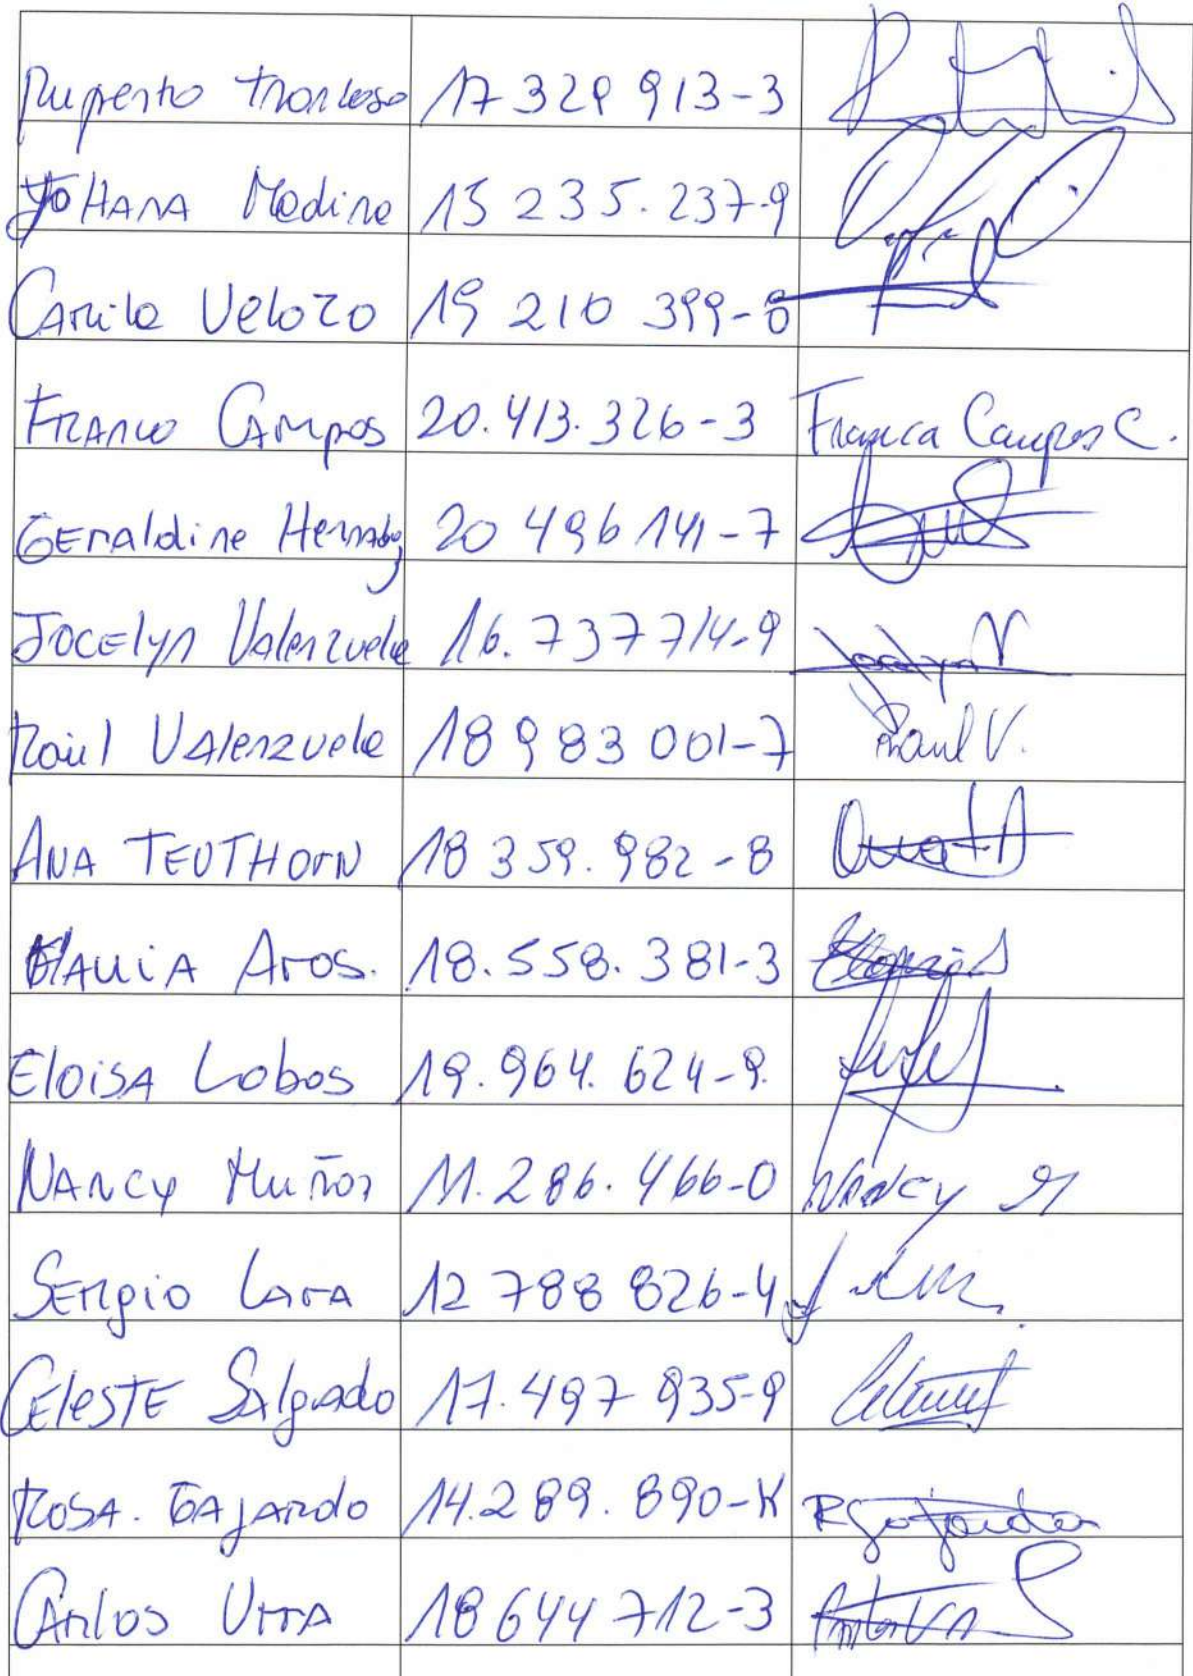 Ruperto Troncoso 17 329 913-3
Yohana Medina 15 235.237-9
Camila Velozo 19 210 399-8
Franco Campos 20.413.326-3 Franca Campos C.
Geraldine 20 496 141-7
Jocelyn Valenzuela 16.737714-9 Jocelyn V
Raúl Valenzuela 18 983 001-7 Raul V.
Ana TEUTHORN 18 359.982-8 Ana t A
Flavia Aros. 18.558.381-3
Eloisa Lobos 19.964.624-9.
Nancy Muñoz 11.286.466-0 Nancy M
Sergio Lara 12 788 826-4
Celeste Salgado 17.497 935-9
Rosa. Gajardo 14.289.890-K R Gajardo
Carlos Urra 18 644 712-3